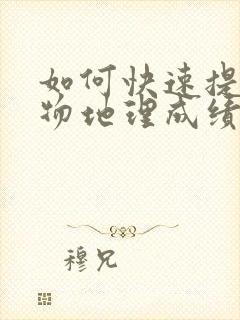 如何快速提
物地理成绩
穆兄